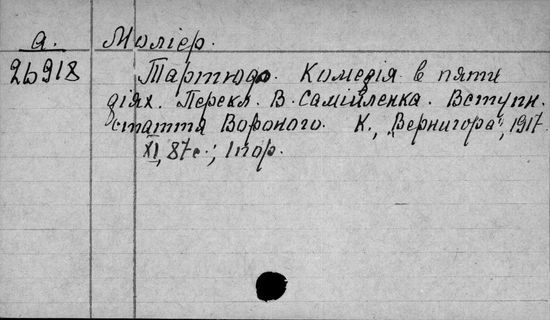 а. Моліер.
26918 Тартюф. Комедія в пяти
діях. Перекл. В. Самійленка. Вступн.
стаття Вороного. К., „Вернигора", 1917.
XI, 87 с.; 1 пор.